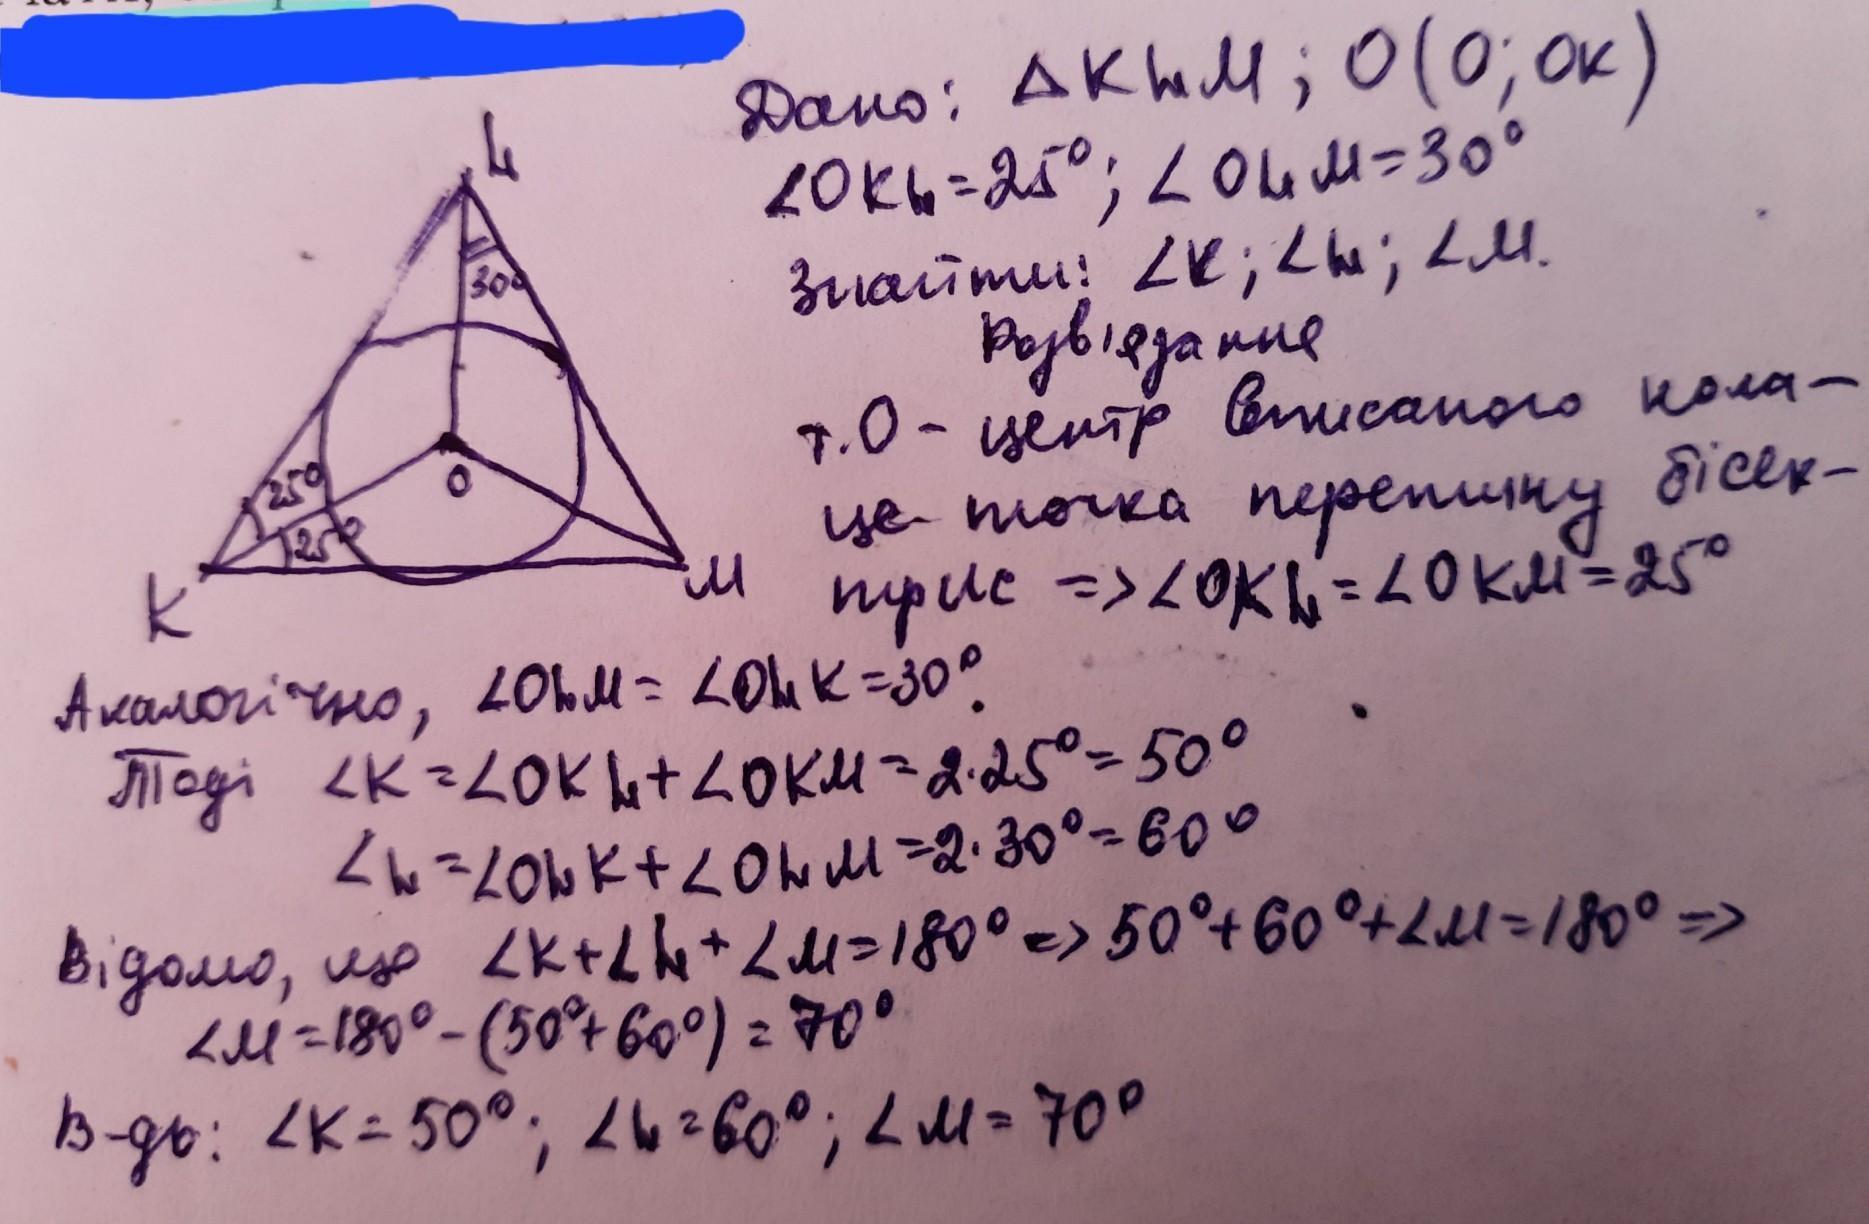 L
30°
25°
25°
O
K
M
Дано: ΔKLM; O(O; OK)
∠OKL=25°; ∠OLM=30°
Знайти: ∠K; ∠L; ∠M.
Розв'язання
т.O - центр вписаного кола-
це точка перетину бісек-
трис => ∠OKL=∠OKM=25°
Аналогічно, ∠OLM=∠OLK=30°.
Тоді ∠K=∠OKL+∠OKM=2·25°=50°
∠L=∠OLK+∠OLM=2·30°=60°
Відомо, що ∠K+∠L+∠M=180° => 50°+60°+∠M=180° =>
∠M=180°-(50°+60°)=70°
В-дь: ∠K=50°; ∠L=60°; ∠M=70°